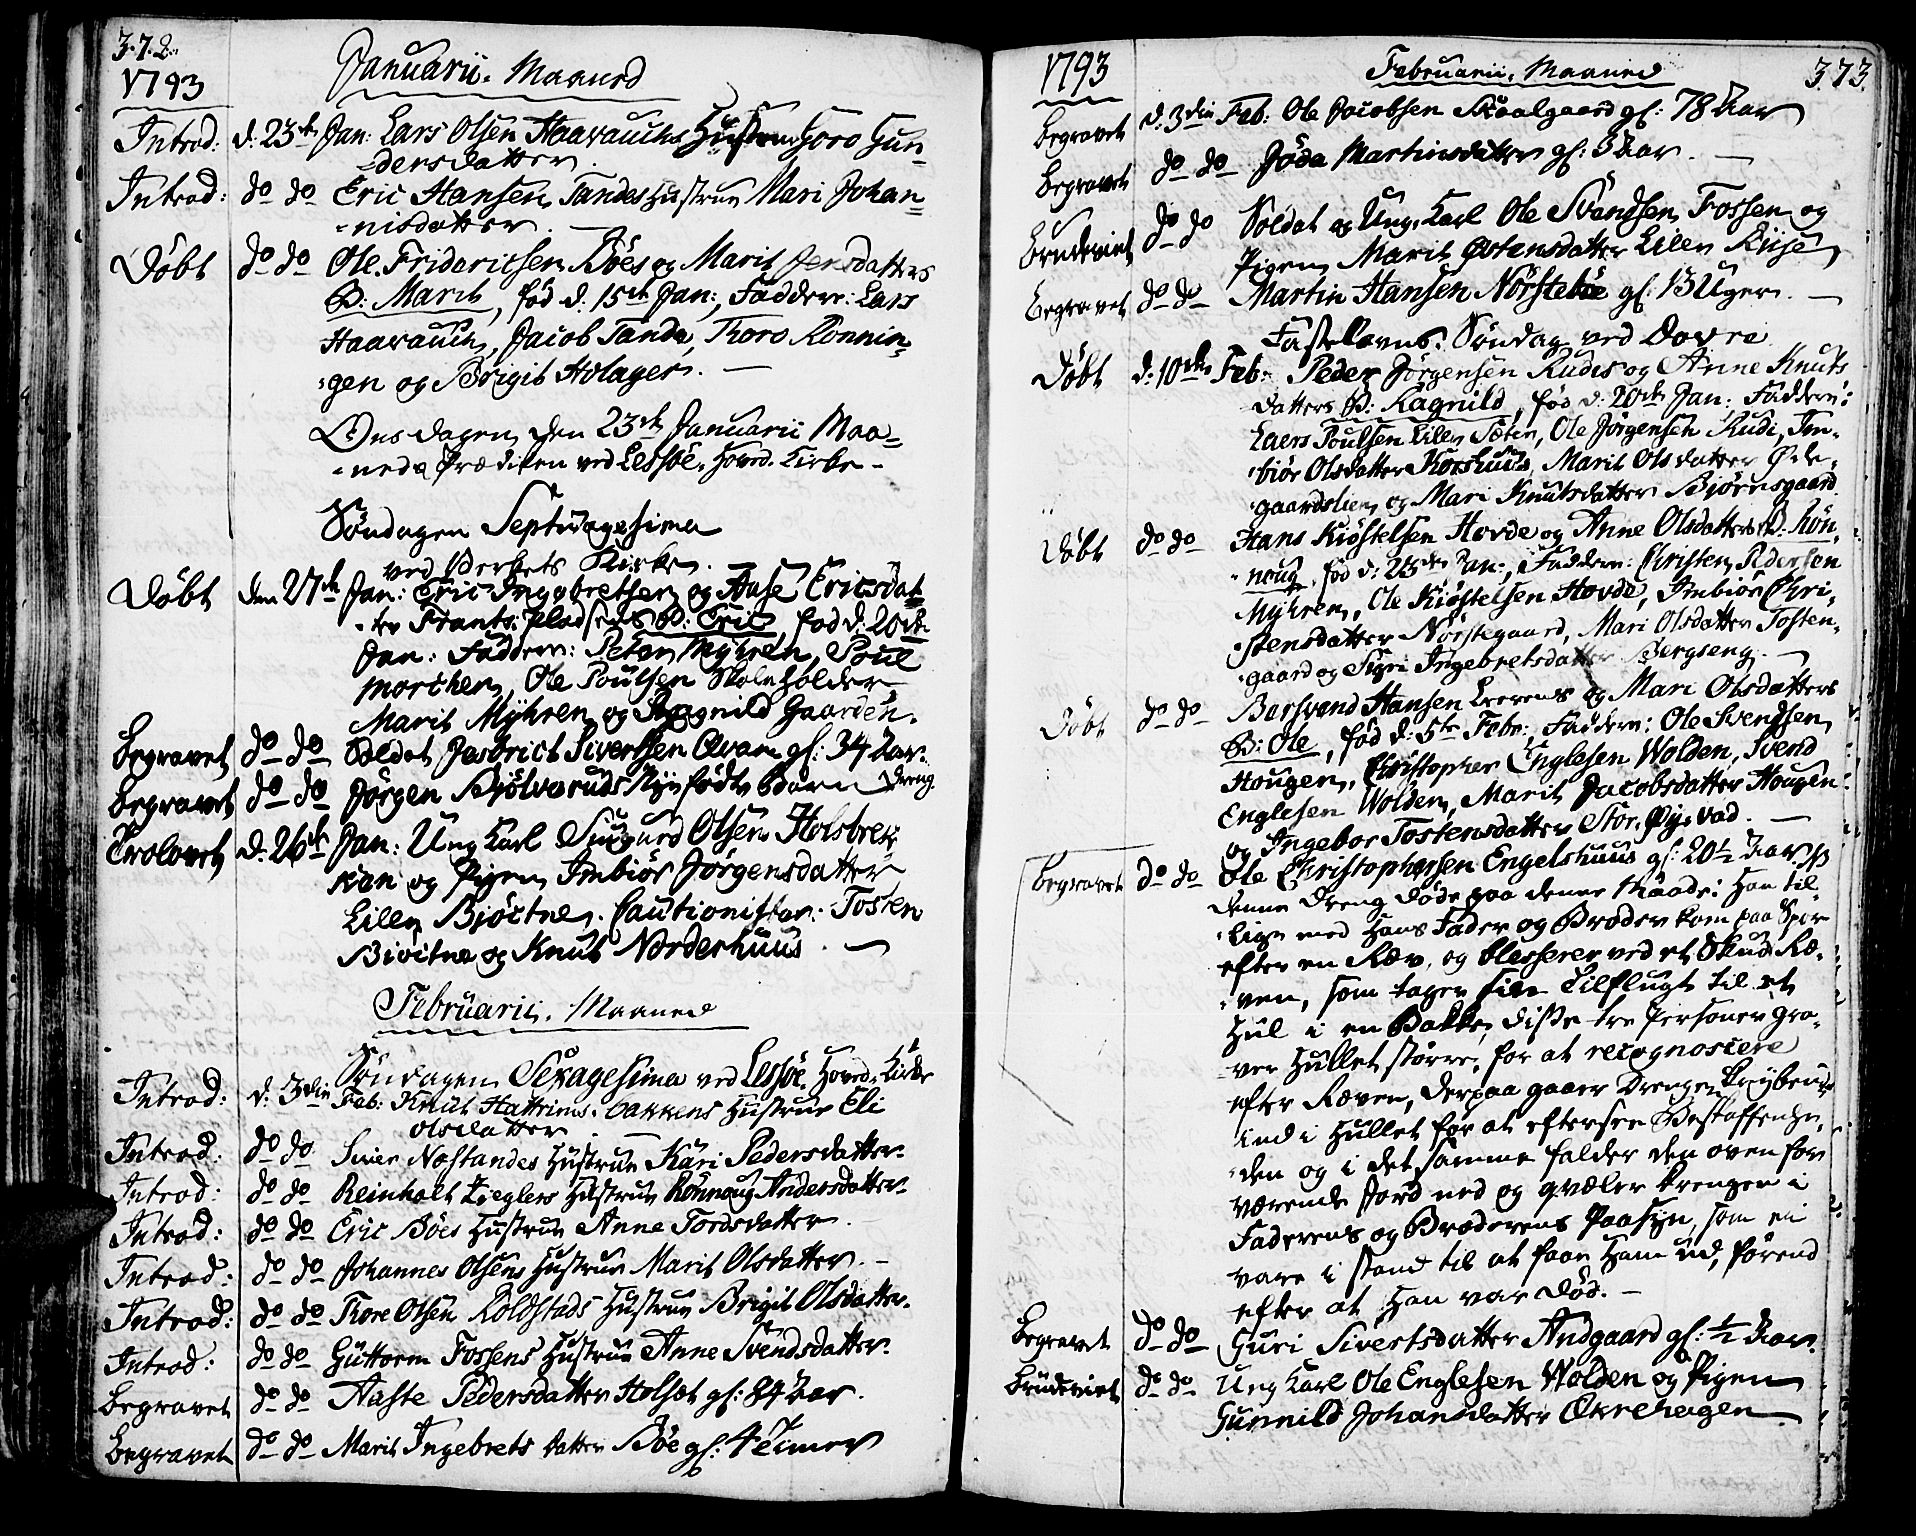 372.
1793
Januarii. Maaned
Introd: d. 23de Jan: Lars Olsen Haavauchs Hustrue Goro Gun=
dersdatter.
Introd: do do Eric Hansen Tandes Hustrue Mari Johan=
=nisdatter.
Døbt do do Ole Fridericsen Böes og Marit Jensdatters
B: Marit, fød d: 15de Jan:, Faddere: Lars
Haavauch, Jacob Tande, Thoro Rönnin=
=gen og Brigit Holager. —
Onsdagen den 23de Januarii Maa=
=neds Prædiken ved Lessöe Hoved Kirke.
Søndagen Septuagesima
ved Verkets Kirke.
Døbt den 27de Jan: Eric Ingebretsen og Aase Ericsdat=
=ter Frants. pladsens B: Eric, fød d. 20de
Jan: Faddere: Peter Myhren, Poul
morchen, Ole Poulsen Skoleholder
Marit Myhren og Ragnild Gaarden.
Begravet do do Soldat Jastrict Sivertsen Qvam gl: 34 Aar.
Begravet do do Jørgen Bjölveruds Nyefødte Barn Dreng.
Trolovet d. 26de Jan: Ung Karl Siugurd Olsen Holsbrek=
ken og Pigen Imbiör Jørgensdatter
Lille Bjöctne. Cautionister: Tosten
Biöctne og Knut Norderhuus. —
Februarii. Maaned
Søndagen Sexagesima ved Lessöe Hoved Kirke
Introd: d. 3die Feb: Knut Hattrims. bakkens Hustrue Eli
Olsdatter. —
Introd: do do Siver Nøstandes Hustrue Kari Pedersdatter.
Introd: do do Reinholt Zieglers Hustrue Rönnoug Andersdatter.
Introd: do do Eric Böes Hustrue Anne Tordsdatter.
Introd: do do Johannes Olsens Hustrue Marit Olsdatter. —
Introd: do do Thore Olsen Koldstads Hustrue Brigit Olsdatter.
Introd: do do Guttorm Fossens Hustrue Anne Svendsdatter.
Begravet do do Aaste Pedersdatter Holsæt gl: 84 Aar.
Begravet do do Marit Ingebrets datter Böe gl: 4 Timer
1793
Februarii. Maaned
373.
Begravet d. 3die Feb: Ole Jacobsen Skaalgaard gl: 78 Aar
Begravet do do Jøda Martinsdatter gl: 5 Aar. —
Brudeviet do do Soldat og Ung Karl Ole Svendsen Fossen og
Pigen Marit Østensdatter Lille Kiise
Begravet do do Martin Hansen Nörsteböe gl: 13 Uger. —
Fastelavns. Søndag ved Dovre
Døbt d. 10de Feb: Peder Jørgensen Rudis og Anne Knuts
datters B: Ragnild, fød d: 20de Jan: Faddere:
Laers Poulsen Lille Sæter, Ole Jørgensen Rudi, Im=
=biör Olsdatter Korshuus, Marit Olsdatter Øde=
=gaardslien og Mari Knutsdatter Bjørnsgaard
Døbt do do Hans Kiöstelsen Hovde og Anne Olsdatters B: Rön=
=noug, fød d: 25de Jan:, Faddere: Christen Pedersen
Myhren, Ole Kiöstelsen Hovde, Imbiör Chri=
=stensdatter Nörstegaard, Mari Olsdatter Tosten=
=gaard og Sigri Ingebretsdatter Bergseng. —
Døbt do do Borsvend Hansen Lverens og Mari Olsdatters
B: Ole, fød d: 5te Febr:, Faddere: Ole Svendsen
Hougen, Christopher Englesen Wolden, Svend
Englesen Wolden, Marit Jacobsdatter Hougen
og Ingebor Tostensdatter Stor. Øye vad. —
Begravet do do Ole Christophersen Engelshuus gl: 20½ Aar. NB
denne Dreng døde paa denne Maade: Han til=
=lige med Hans Fader og Broder kom paa Spor
efter en Ræv, og blesserer ved et Skud Ræ=
=ven, som tager sin Tilflugt til et
Hul i en Bakke, disse tre Personer gra=
=ver Hullet større, for at recognoscere
efter Ræven, derpaa gaaer Drengen krybende
ind i Hullet for at eftersee Beskaffenhe=
=den og i det samme falder den oven for
værende Jord ned og qvæler Drengen i
Faderens og Broderens Paasyn, som ei
vare i stand til at faae Ham ud, førend
efter at Han var Død. —
Begravet do do Guri Sivertsdatter Andgaard gl: ½ Aar.
Brudeviet do do Ung Karl Ole Englesen Wolden og Pigen
Gunnild Johansdatter Ekrehagen.